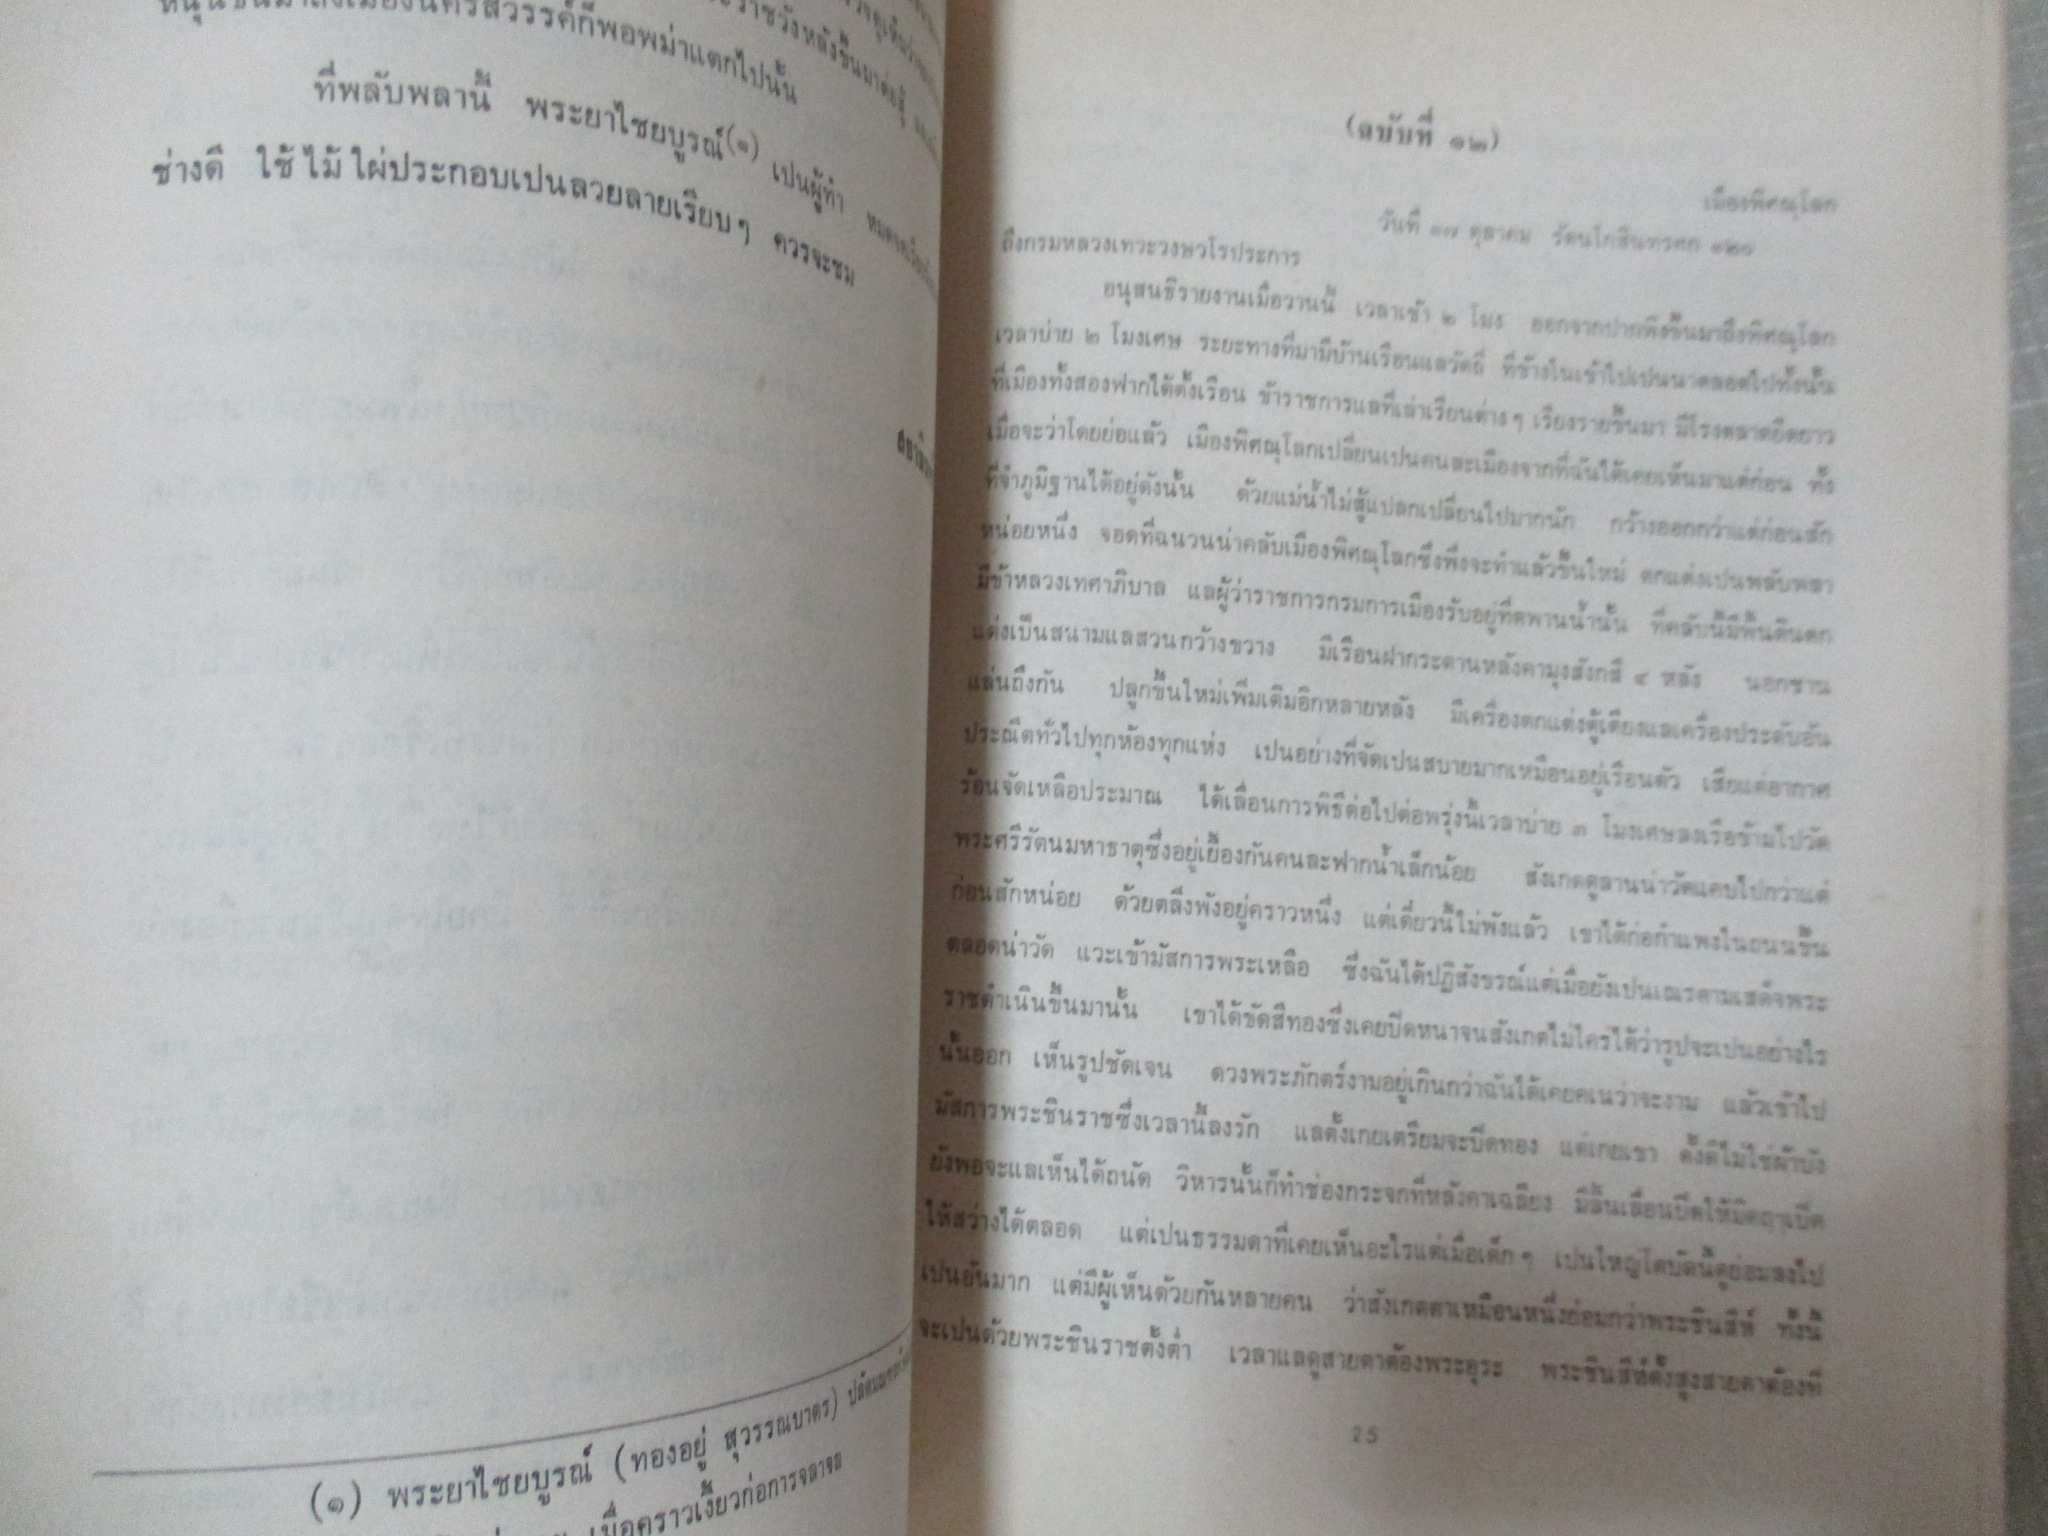 หนุนขึ้นมาถึงเมืองนครสวรรค์ก็พอพม่าแตกไปนั้น
ราชวังหลังขึ้นมาต่อสู้
ที่พลับพลานี้ พระยาไชยบูรณ์(๑) เปนผู้ทำ
ช่างดี ใช้ไม้ไผ่ประกอบเปนลวยลายเรียบๆ ควรจะชม
(๑) พระยาไชยบูรณ์ (ทองอยู่ สุวรรณบาตร)
เมื่อคราวเงี้ยวก่อการจลาจล
(ฉบับที่ ๑๒)
เมืองพิศณุโลก
วันที่ ๑๗ ตุลาคม รัตนโกสินทรศก ๑๒๐
ถึงกรมหลวงเทวะวงษวโรประการ
อนุสนธิรายงานเมื่อวานนี้ เวลาเช้า ๒ โมง ออกจากปากพิงขึ้นมาถึงพิศณุโลก
เวลาบ่าย ๒ โมงเศษ ระยะทางที่มามีบ้านเรือนแลวัดถี่ ที่ข้างในเข้าไปเปนนาตลอดไปทั้งนั้น
ที่เมืองทั้งสองฟากได้ตั้งเรือน ข้าราชการแลที่เล่าเรียนต่างๆ เรียงรายขึ้นมา มีโรงตลาดยืดยาว
เมื่อจะว่าโดยย่อแล้ว เมืองพิศณุโลกเปลี่ยนเปนคนละเมืองจากที่ฉันได้เคยเห็นมาแต่ก่อน ทั้ง
ที่จำภูมิฐานได้อยู่ดังนั้น ด้วยแม่น้ำไม่สู้แปลกเปลี่ยนไปมากนัก กว้างออกกว่าแต่ก่อนสัก
หน่อยหนึ่ง จอดที่ฉนวนน่าคลับเมืองพิศณุโลกซึ่งพึ่งจะทำแล้วขึ้นใหม่ ตกแต่งเปนพลับพลา
มีข้าหลวงเทศาภิบาล แลผู้ว่าราชการกรมการเมืองรับอยู่ที่ตพานน้ำนั้น ที่คลับนี้มีพื้นดินตก
แต่งเป็นสนามแลสวนกว้างขวาง มีเรือนฝากระดานหลังคามุงสังกสี ๔ หลัง นอกชาน
แล่นถึงกัน ปลูกขึ้นใหม่เพิ่มเติมอิกหลายหลัง มีเครื่องตกแต่งตู้เตียงแลเครื่องประดับอัน
ประณีตทั่วไปทุกห้องทุกแห่ง เปนอย่างที่จัดเปนสบายมากเหมือนอยู่เรือนตัว เสียแต่อากาศ
ร้อนจัดเหลือประมาณ ได้เลื่อนการพิธีต่อไปต่อพรุ่งนี้เวลาบ่าย ๓ โมงเศษลงเรือข้ามไปวัด
พระศรีรัตนมหาธาตุซึ่งอยู่เยื้องกันคนละฟากน้ำเล็กน้อย สังเกตดูลานน่าวัดแคบไปกว่าแต่
ก่อนสักหน่อย ด้วยตลิ่งพังอยู่คราวหนึ่ง แต่เดี๋ยวนี้ไม่พังแล้ว เขาได้ก่อกำแพงในถนนขึ้น
ตลอดน่าวัด แวะเข้ามัสการพระเหลือ ซึ่งฉันได้ปฏิสังขรณ์แต่เมื่อยังเปนเณรตามเสด็จพระ
ราชดำเนินขึ้นมานั้น เขาได้ขัดสีทองซึ่งเคยปิดหนาจนสังเกตไม่ใคร่ได้ว่ารูปจะเปนอย่างไร
นั้นออก เห็นรูปชัดเจน ดวงพระภักตร์งามอยู่เกินกว่าฉันได้เคยคเนว่าจะงาม แล้วเข้าไป
มัสการพระชินราชซึ่งเวลานี้ลงรัก แลตั้งเกยเตรียมจะปิดทอง แต่เกยเขา ตั้งดีไม่ใช่ผ้าบัง
ยังพอจะแลเห็นได้ถนัด วิหารนั้นก็ทำช่องกระจกที่หลังคาเฉลียง มีลิ้นเลื่อนปิดให้มืดฤๅเปิด
ให้สว่างได้ตลอด แต่เปนธรรมดาที่เคยเห็นอะไรแต่เมื่อเด็กๆ เปนใหญ่โตบัดนี้ดูย่อมลงไป
เปนอันมาก แต่มีผู้เห็นด้วยกันหลายคน ว่าสังเกตตาเหมือนหนึ่งย่อมกว่าพระชินสีห์ ทั้งนี้
จะเปนด้วยพระชินราชตั้งต่ำ เวลาแลดูสายตาต้องพระอุระ พระชินสีห์ตั้งสูงสายตาต้องที่
25